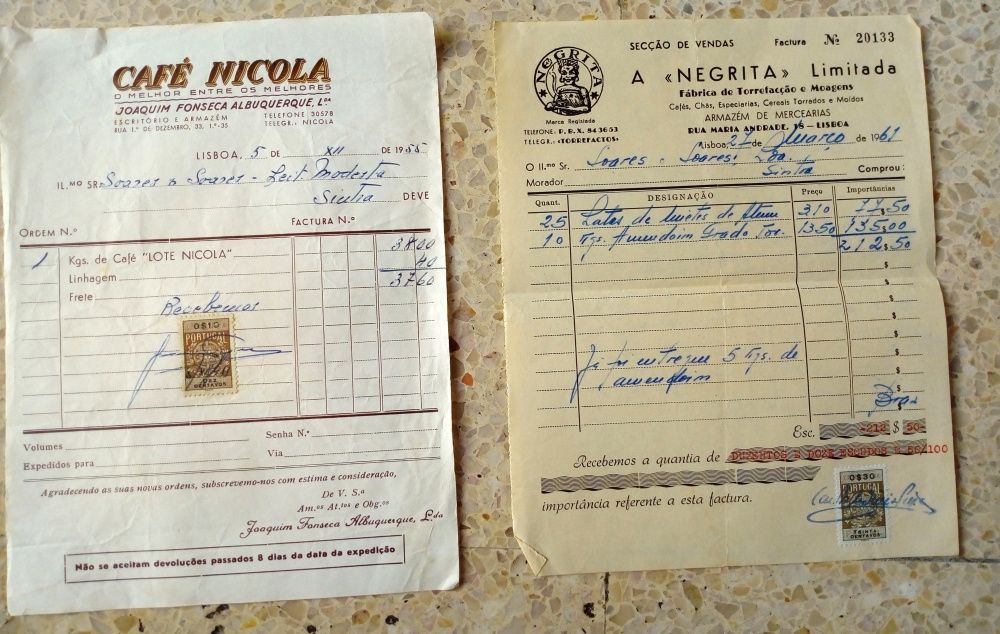 CAFÉ NICOLA
O MELHOR ENTRE OS MELHORES
JOAQUIM FONSECA ALBUQUERQUE, L.DA
ESCRITÓRIO E ARMAZÉM TELEFONE 30578
RUA 1.º DE DEZEMBRO, 33, 1.º-35 TELEGR.: NICOLA
LISBOA, 5 DE XII DE 1955
IL.MO SR. Soares & Soares - Modesta
Sintra DEVE
FACTURA N.º
ORDEM N.º
1 Kgs. de Café "LOTE NICOLA" 3800
Linhagem 40
Frete 3760
Recebemos
0$10
PORTUGAL
DEZ
CENTAVOS
Volumes Senha N.º
Expedidos para Via
Agradecendo as suas novas ordens, subscrevemo-nos com estima e consideração,
De V. S.ª
Am.os At.tos e Obg.os
Joaquim Fonseca Albuquerque, L.da
Não se aceitam devoluções passados 8 dias da data da expedição
SECÇÃO DE VENDAS Factura Nº 20133
NEGRITA
A «NEGRITA» Limitada
Fábrica de Torrefacção e Moagens
Cafés, Chás, Especiarias, Cereais Torrados e Moidos
Marca Registada
ARMAZÉM DE MERCEARIAS
TELEFONE: P. B. X. 843653
RUA MARIA ANDRADE, 18 — LISBOA
TELEGR.: «TORREFACTOS»
Lisboa, 27 de Março de 1961
O Il.mo Sr. Soares - Soares, Lda.
Morador Sintra Comprou:
Quant. DESIGNAÇÃO Preço Importâncias
25 Latas de de 310 77$50
10 Kgs. Amendoim Grado Tor. 1350 135$00
212$50
Já foi entregue 5 Kgs. de
amendoim
Esc. -212 $ 50-
Recebemos a quantia de DUZENTOS E DOZE ESCUDOS E 50/100
importância referente a esta factura.
0$30
PORTUGAL
TRINTA
CENTAVOS